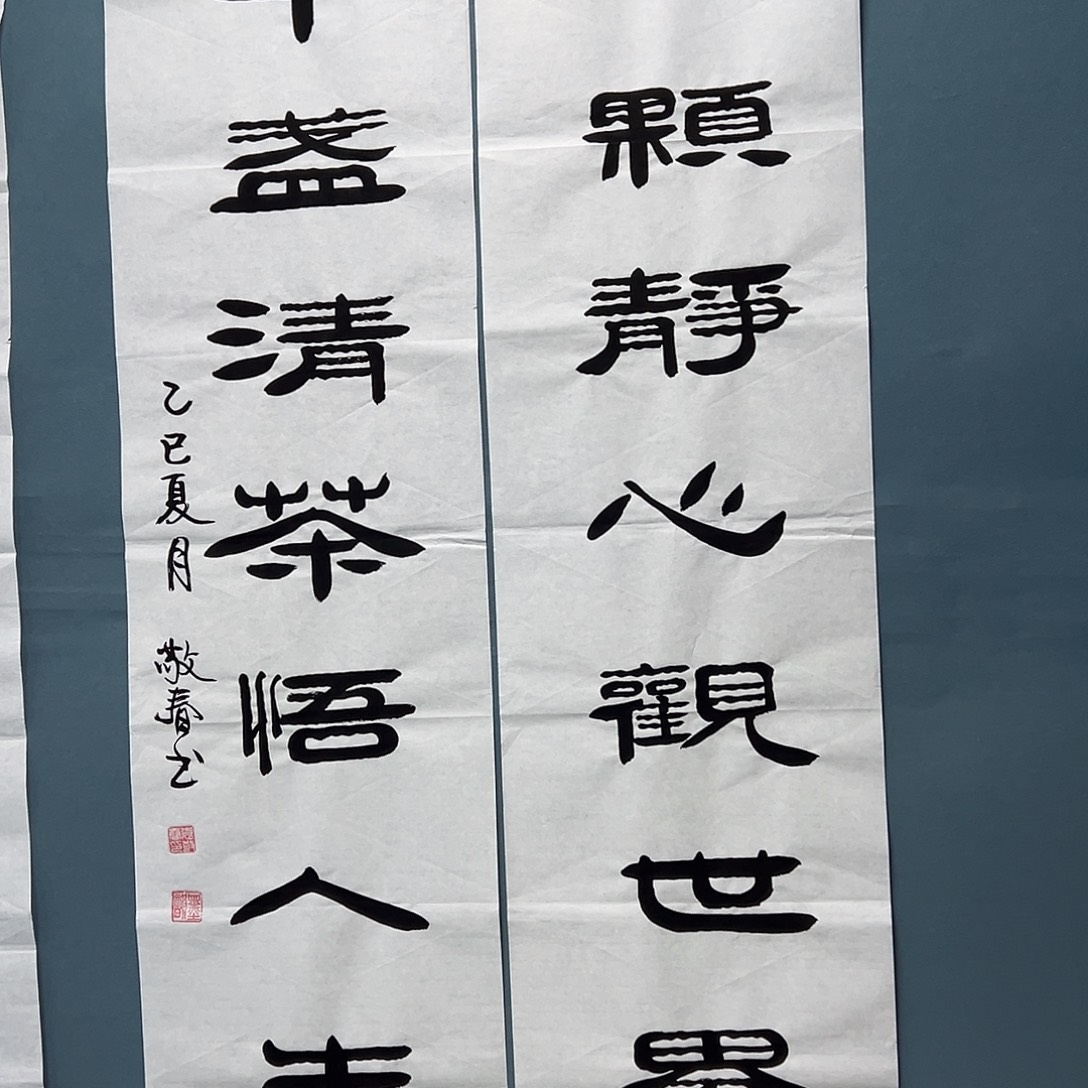 顆靜心觀世界
盞清茶悟人生
乙巳夏月 敬春书